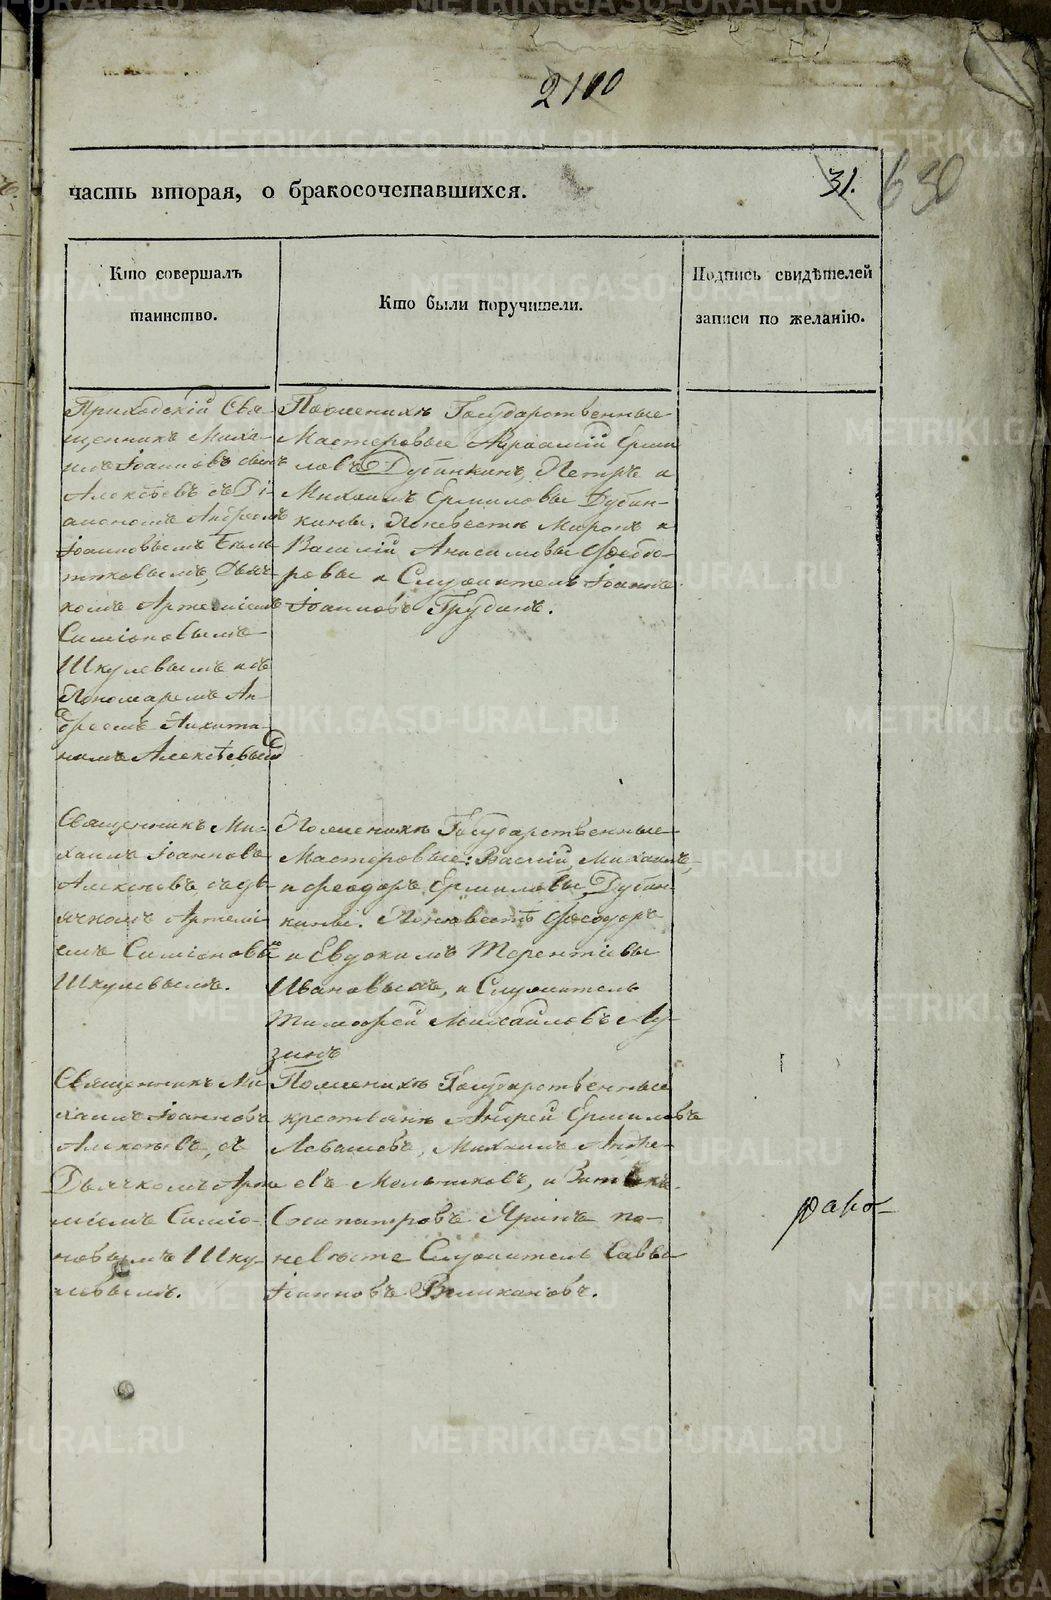 2100
часть вторая, о бракосочетавшихся.
31.
630
Кто совершалъ
таинство.
Кто были поручители.
Подпись свидѣтелей
записи по желанію.
Приходскій Свя-
щенникъ Миха-
илъ Іоанновъ
Алексѣевъ съ Ді-
акономъ Андреемъ
Іоанновымъ
Дьяч-
комъ Артеміемъ
Симіоновымъ
Шкулевымъ и съ
Пономаремъ Ан-
дреемъ
Алексѣевымъ
По женихѣ Государственные
Мастеровые Авраамій Ерми
ловъ Дубинкинъ, Петръ и
Михаилъ Ермиловы Дубин-
кины. По невестѣ Миронъ и
Василій Анисимовы Федо-
ровы и Служитель Іоаннъ
Іоанновъ Грубинъ.
Священникъ Ми-
хаилъ Іоанновъ
Алексѣевъ съ дь-
ячкомъ Артемі-
емъ Симіоновы
Шкулевымъ.
По женихѣ Государственные
Мастеровые: Василій, Михаилъ,
и Феодоръ Ермиловы Дубин-
кины. По невестѣ Феодоръ
и Евдокимъ Терентіевы
Ивановыхъ, и Служитель
Тимофей Михайловъ Лу-
зинъ
Священникъ Ми
хаилъ Іоанновъ
Алексѣевъ, съ
Дьячкомъ Арте
міемъ Симіо-
новымъ Шку-
левымъ.
По женихѣ Государственные
крестьяне Андрей Ермиловъ
Левашовъ, Михаилъ Андре-
евъ Мельниковъ, и
Осипатровъ Яринъ по
невѣсте Служитель Савва
Іоанновъ Великановъ.